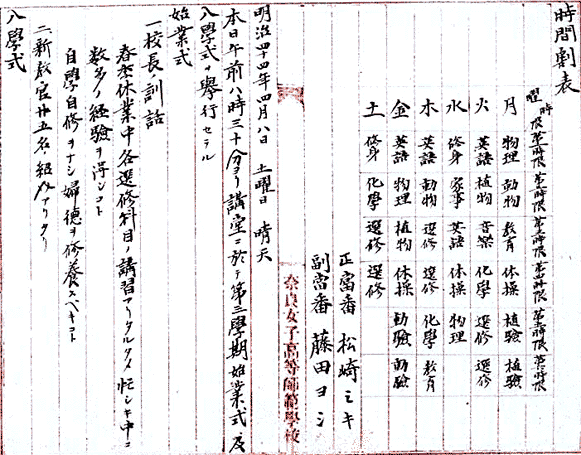 時間割表
曜 時限 第一時限 第二時限 第三時限 第四時限 第五時限 第六時限
月 物理 動物 教育 休操 植驗 植驗
火 英語 植物 音楽 化學 選修 選修
水 修身 家事 英語 休操 物理
木 英語 動物 選修 選修 化學 教育
金 英語 物理 植物 休操 動驗 動驗
土 修身 化學 選修 選修
正當番 松崎ミキ
副當番 藤田ヨシ
奈良女子高等師範學校
明治四十四年四月八日 土曜日 晴天
本日午前八時三十分ヨリ講堂ニ於テ第三學期始業式及
入學式ヲ舉行セラル
始業式
一校長ノ訓話
春季休業中各選修科目ノ講習アリタルタメ忙シキ中ニ
数多ノ経験ヲ得シコト
自學自修ヲナシ婦徳ヲ修養スベキコト
二新教官廿五名ノ紹介アリタリ
入學式